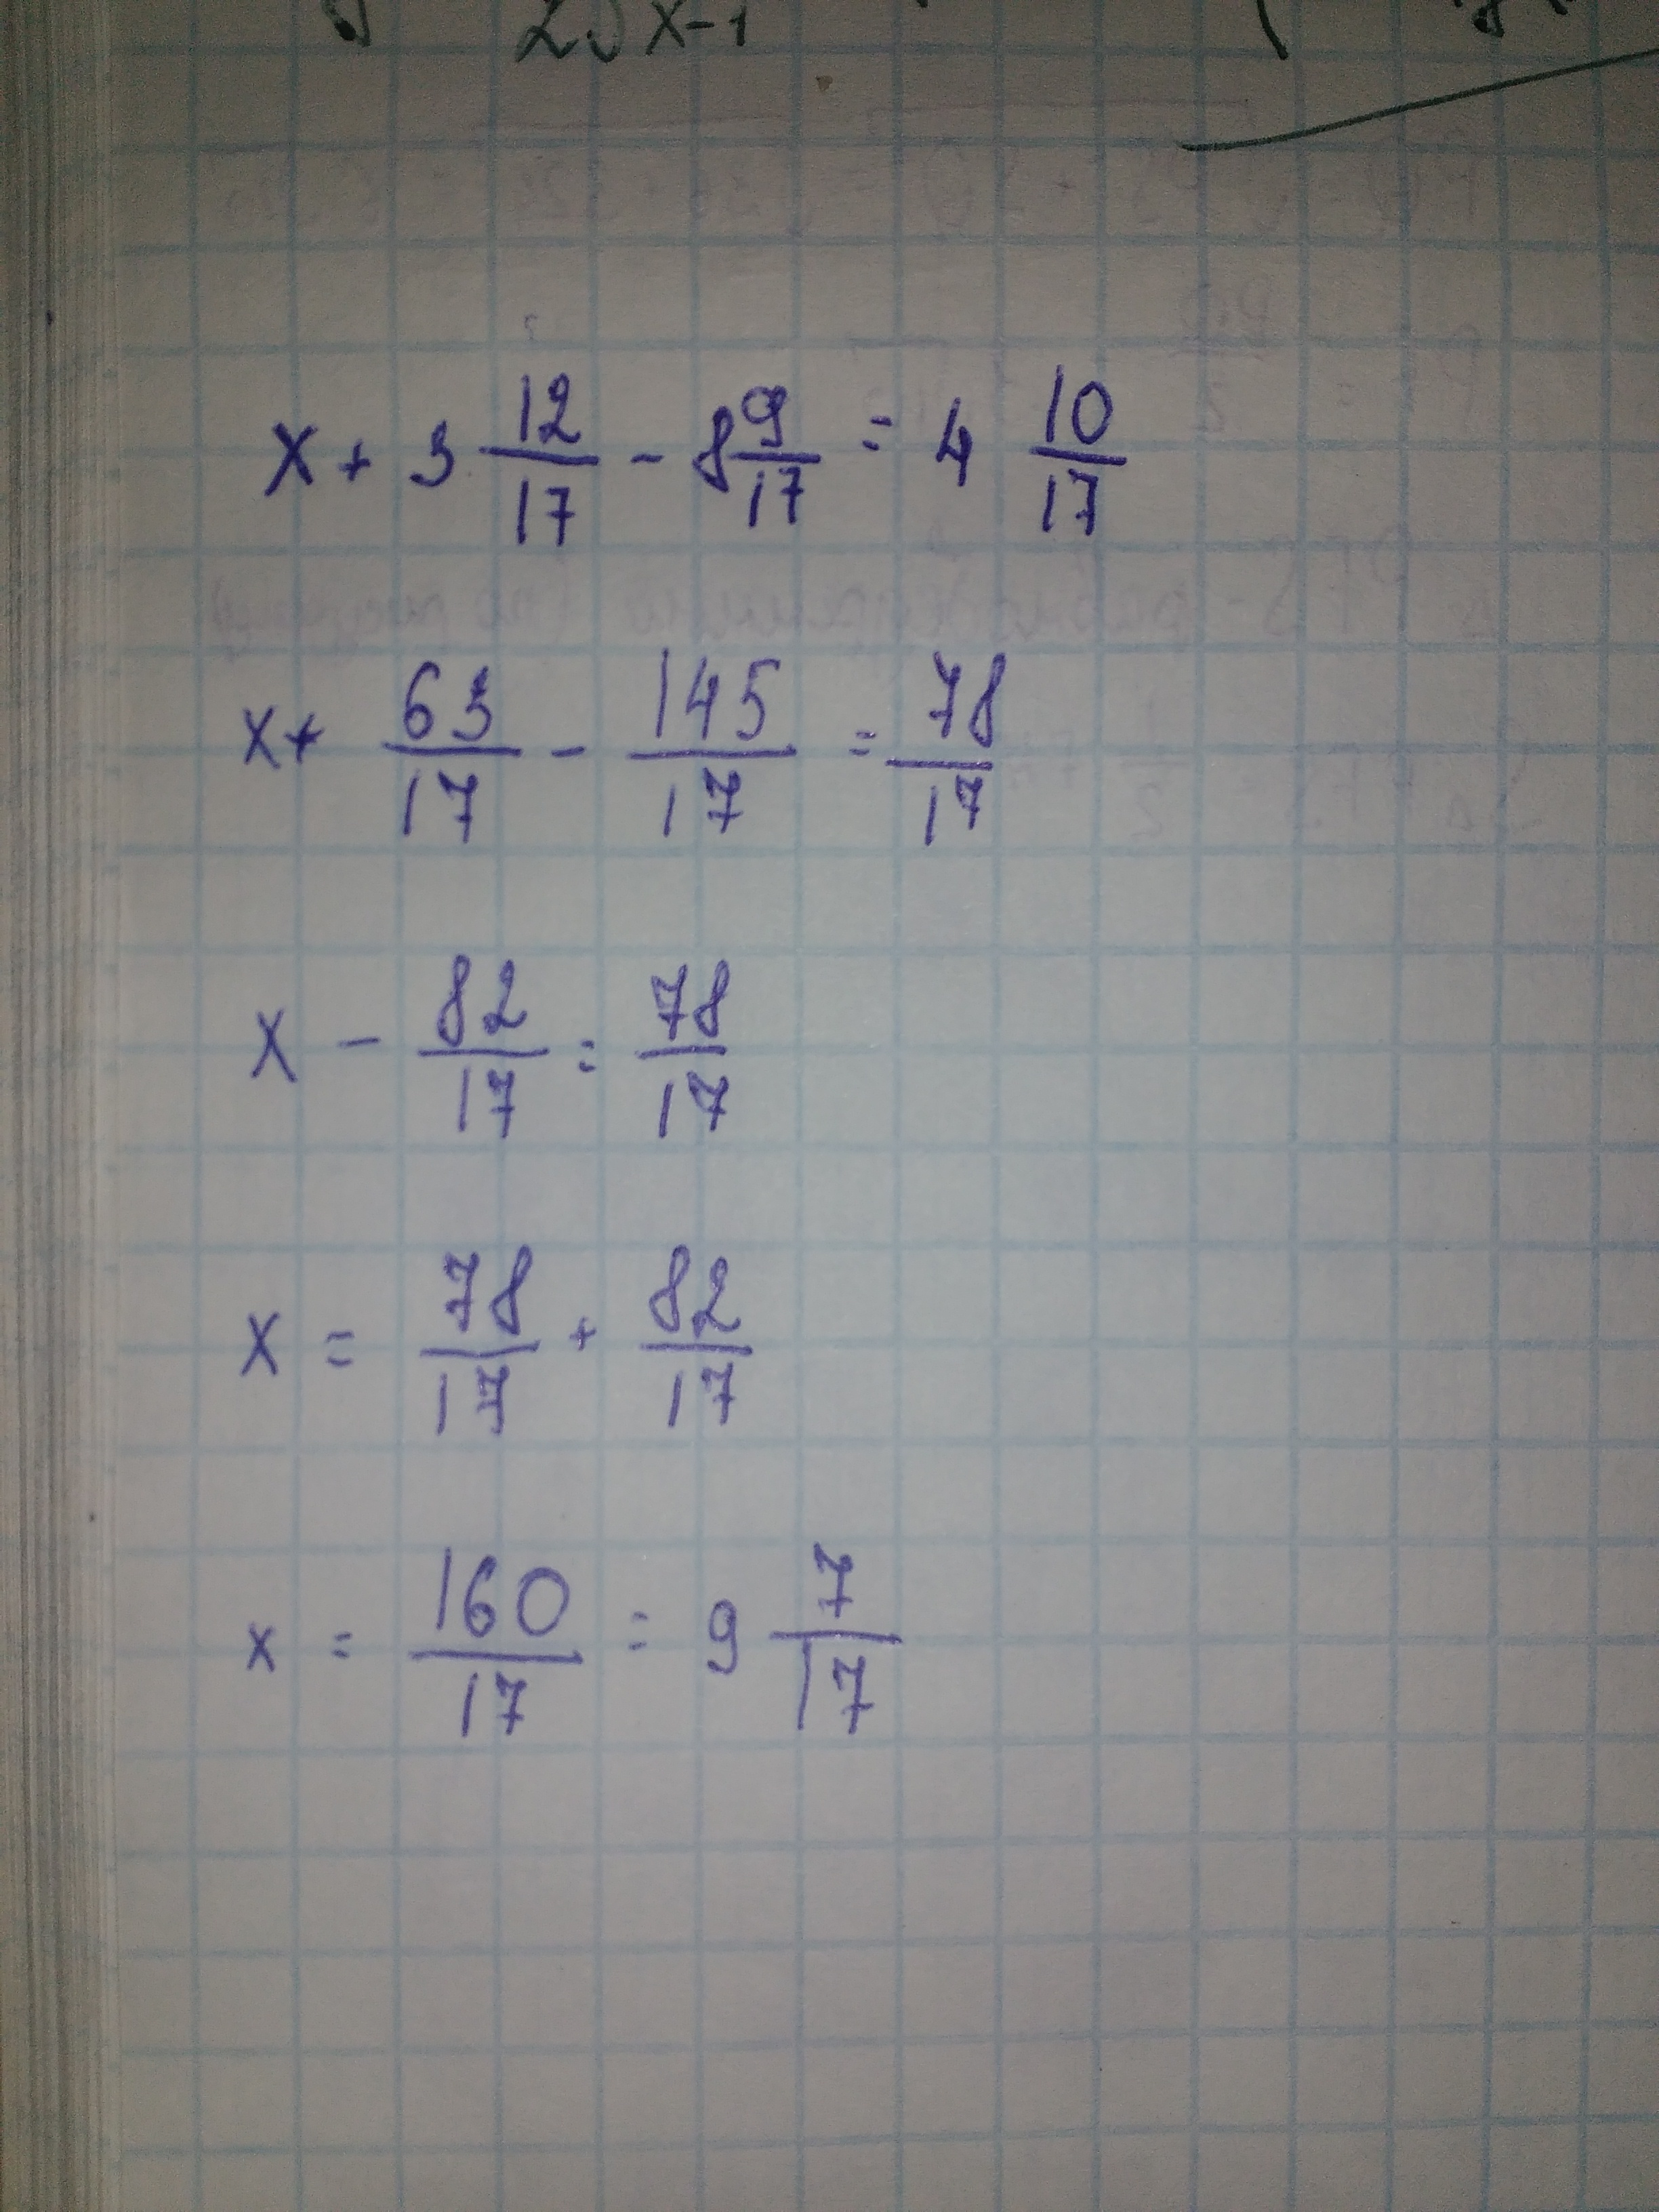 2) x-1
x + 3 12/17 - 8 9/17 = 4 10/17
x + 63/17 - 145/17 = 78/17
x - 82/17 = 78/17
x = 78/17 + 82/17
x = 160/17 = 9 7/17